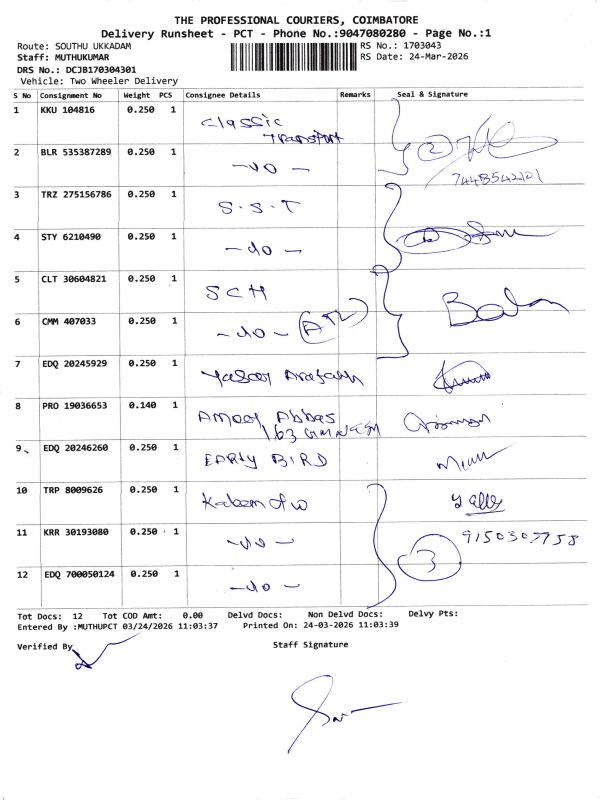 THE PROFESSIONAL COURIERS, COIMBATORE
Delivery Runsheet - PCT - Phone No.:9047080280 - Page No.:1
Route: SOUTHU UKKADAM
RS No.: 1703043
Staff: MUTHUKUMAR
RS Date: 24-Mar-2026
DRS No.: DCJB170304301
Vehicle: Two Wheeler Delivery
S No Consignment No Weight PCS Consignee Details Remarks Seal & Signature
1 KKU 104816 0.250 1 Classic Transport
2 BLR 535387289 0.250 1 -do- 2
3 TRZ 275156786 0.250 1 S.S.T
4 STY 6210490 0.250 1 -do-
5 CLT 30604821 0.250 1 SCH
6 CMM 407033 0.250 1 -do-
7 EDQ 20245929 0.250 1
8 PRO 19036653 0.140 1 Abbas
9 EDQ 20246260 0.250 1 EARLY BIRD
10 TRP 8009626 0.250 1
11 KRR 30193080 0.250 1 -do- 9150307758
12 EDQ 700050124 0.250 1 -do- 3
Tot Docs: 12 Tot COD Amt: 0.00 Delvd Docs: Non Delvd Docs: Delvy Pts:
Entered By :MUTHUPCT 03/24/2026 11:03:37 Printed On: 24-03-2026 11:03:39
Verified By
Staff Signature